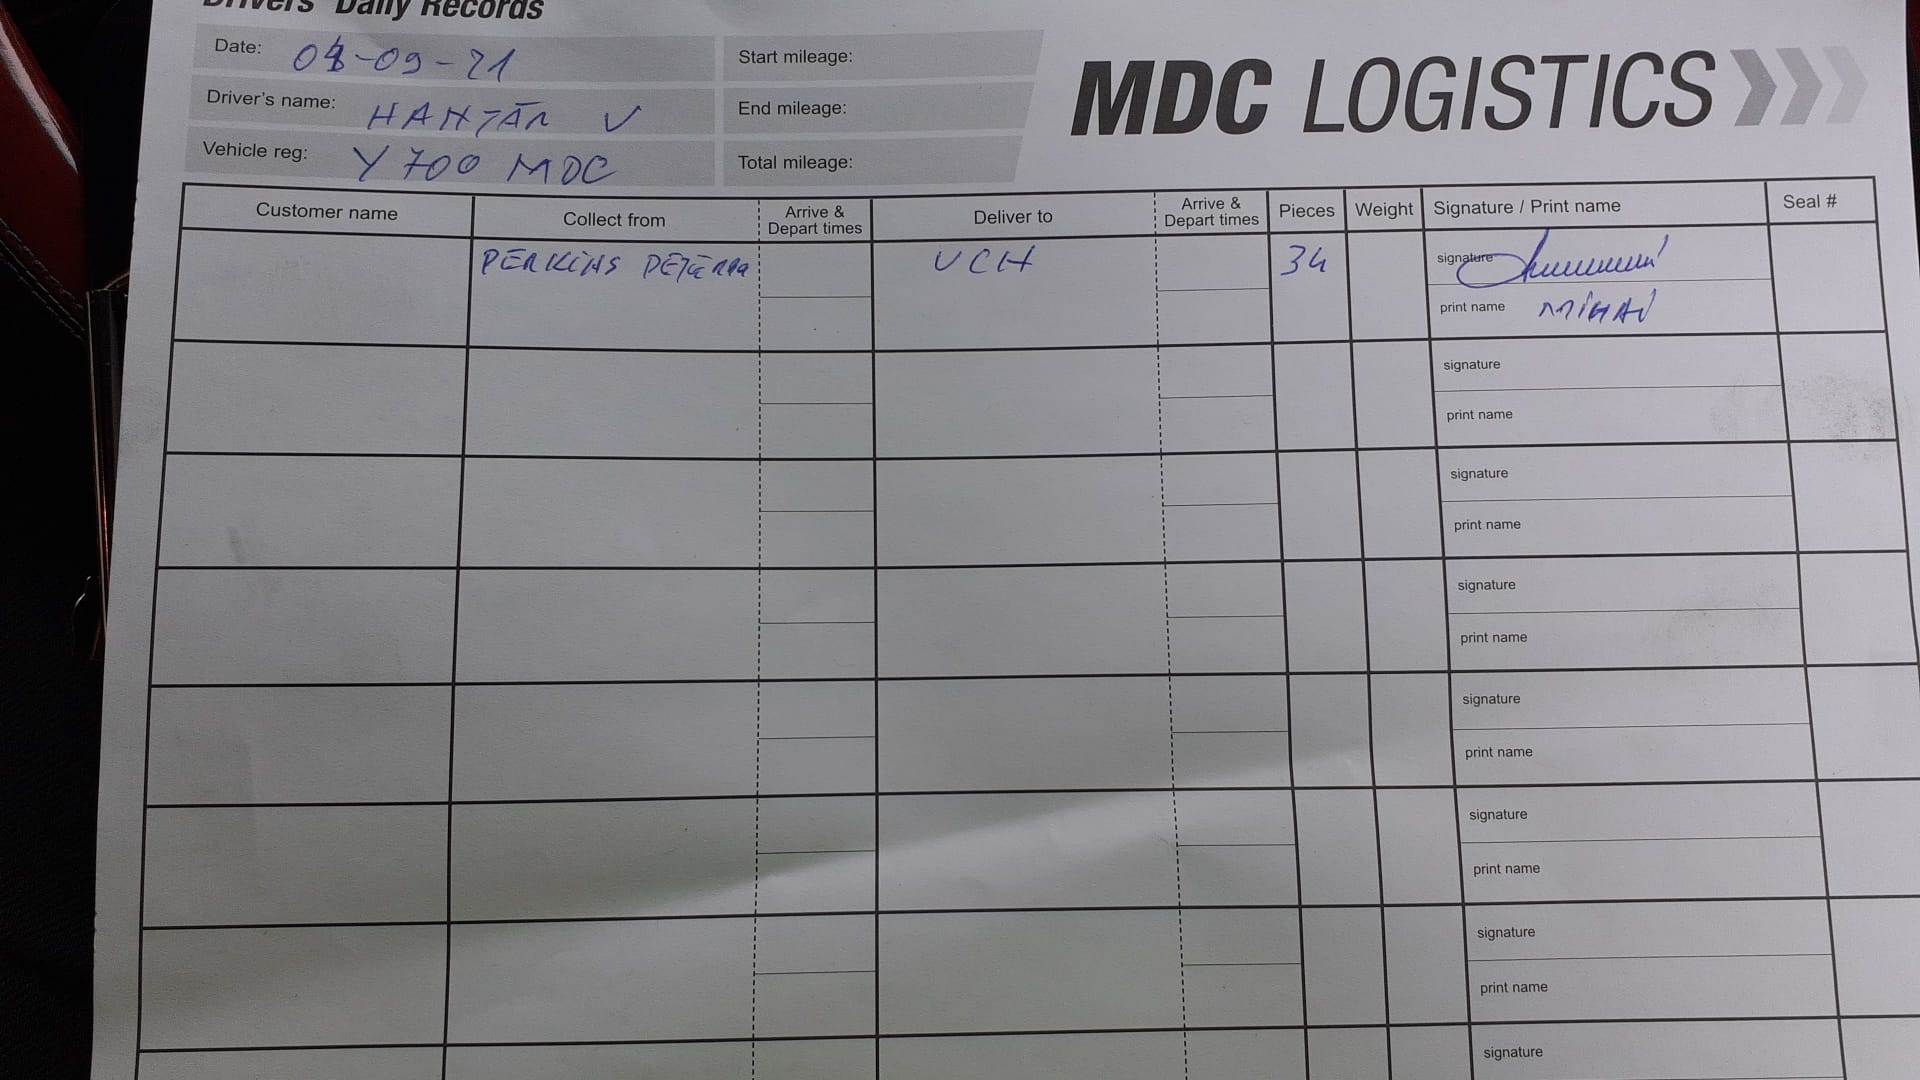 Drivers' Daily Records
Date: 08-09-21
Start mileage:
MDC LOGISTICS
Driver's name: V
End mileage:
Vehicle reg: Y 700 MDC
Total mileage:
Customer name Collect from Arrive & Depart times Deliver to Arrive & Depart times Pieces Weight Signature / Print name Seal #
PERKINS UCH 34 signature
print name MIHAI
signature
print name
signature
print name
signature
print name
signature
print name
signature
print name
signature
print name
signature